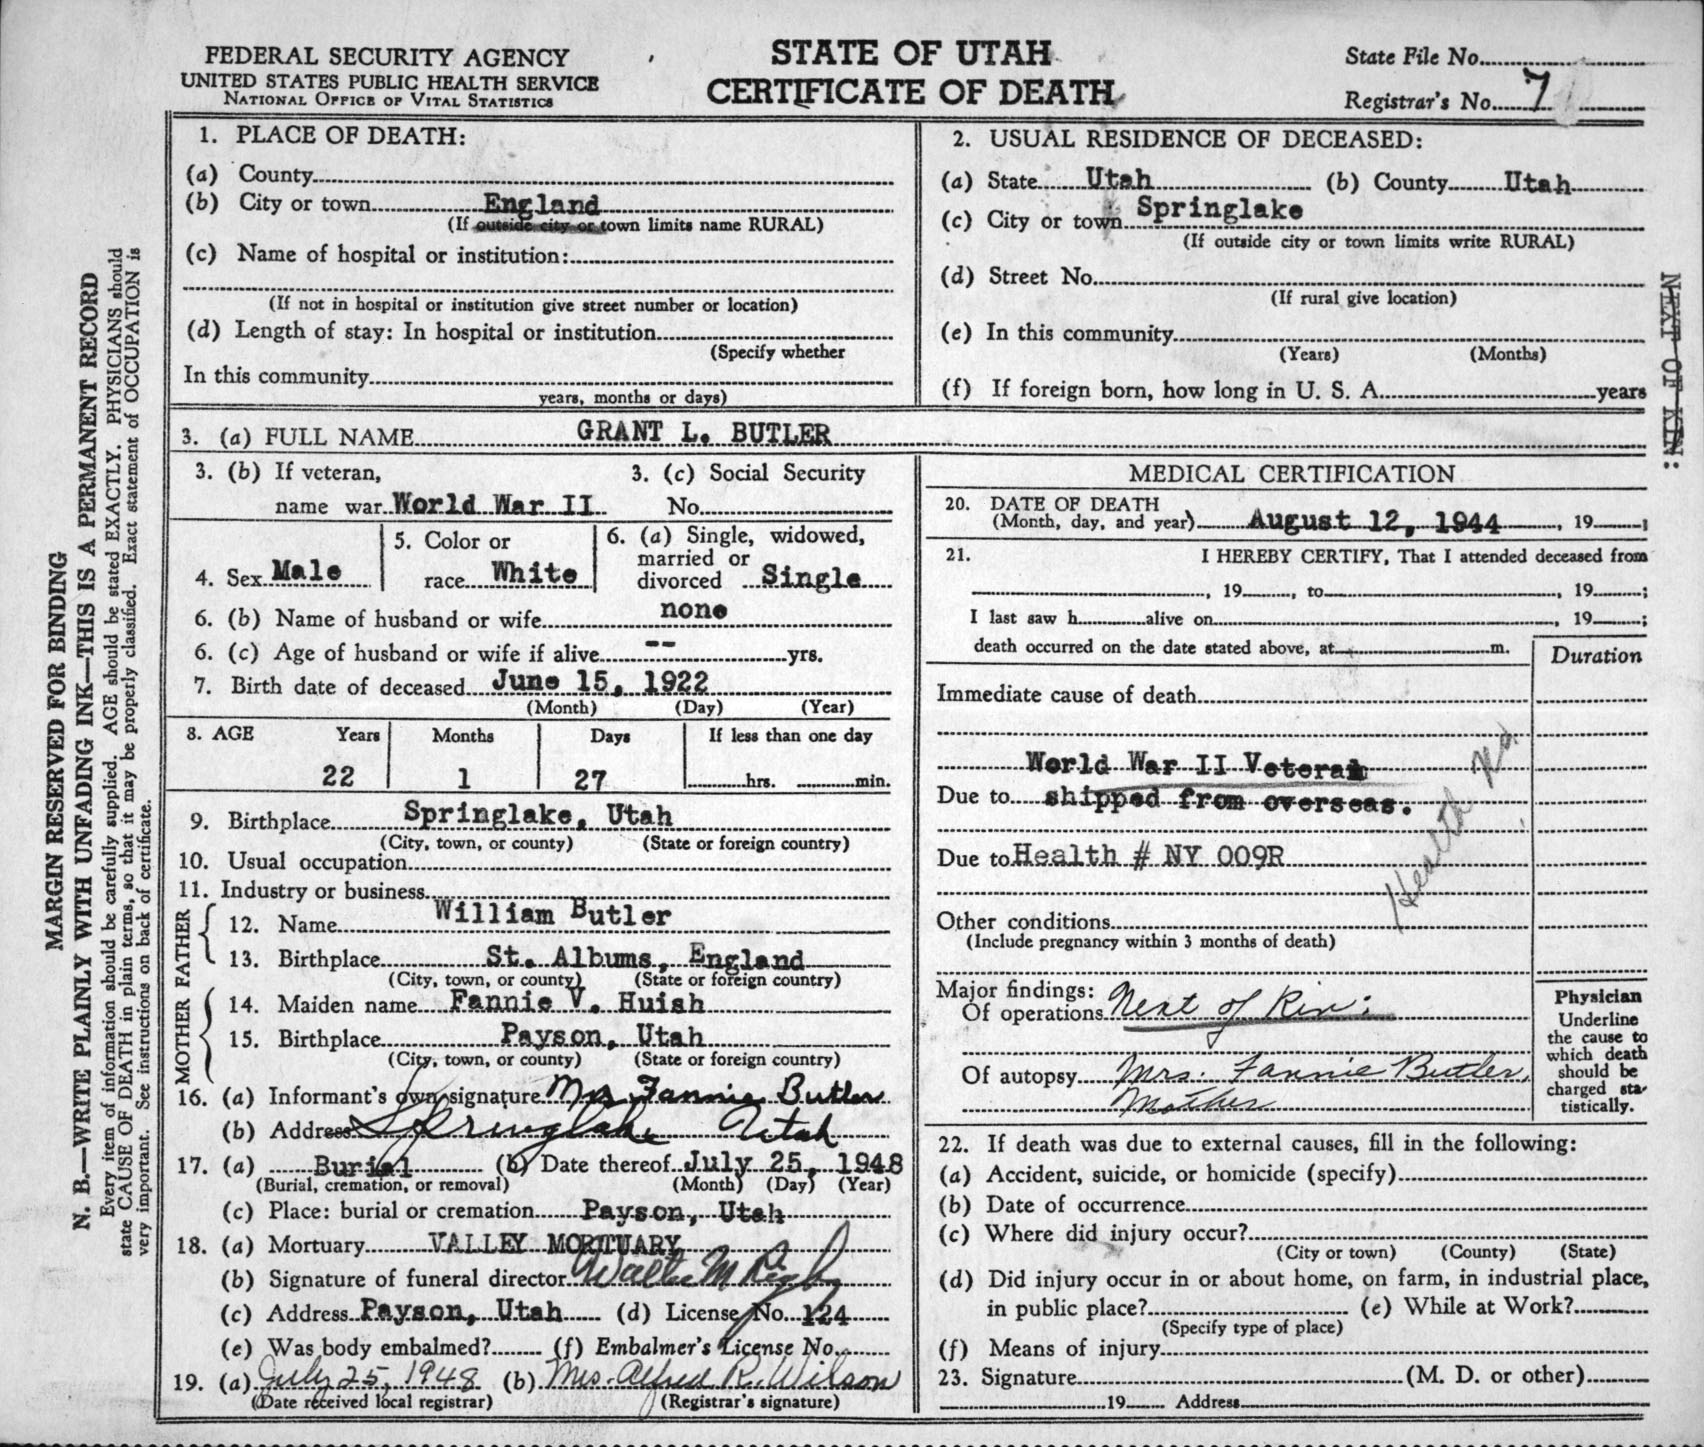 FEDERAL SECURITY AGENCY
UNITED STATES PUBLIC HEALTH SERVICE
NATIONAL OFFICE OF VITAL STATISTICS
STATE OF UTAH
CERTIFICATE OF DEATH
State File No.
Registrar's No. 7
MARGIN RESERVED FOR BINDING
N. B.—WRITE PLAINLY WITH UNFADING INK—THIS IS A PERMANENT RECORD
Every item of information should be carefully supplied. AGE should be stated EXACTLY. PHYSICIANS should
state CAUSE OF DEATH in plain terms, so that it may be properly classified. Exact statement of OCCUPATION is
very important. See instructions on back of certificate.
1. PLACE OF DEATH:
(a) County
(b) City or town England
(If outside city or town limits name RURAL)
(c) Name of hospital or institution:
(If not in hospital or institution give street number or location)
(d) Length of stay: In hospital or institution
(Specify whether
In this community
years, months or days)
2. USUAL RESIDENCE OF DECEASED:
(a) State Utah (b) County Utah
(c) City or town Springlake
(If outside city or town limits write RURAL)
(d) Street No.
(If rural give location)
(e) In this community
(Years) (Months)
(f) If foreign born, how long in U. S. A. years
NEXT OF KIN:
3. (a) FULL NAME GRANT L. BUTLER
3. (b) If veteran, 3. (c) Social Security
name war World War II No.
4. Sex Male
5. Color or
race White
6. (a) Single, widowed,
married or
divorced Single
6. (b) Name of husband or wife none
6. (c) Age of husband or wife if alive -- yrs.
7. Birth date of deceased June 15, 1922
(Month) (Day) (Year)
8. AGE Years Months Days If less than one day
22 1 27 hrs. min.
9. Birthplace Springlake, Utah
(City, town, or county) (State or foreign country)
10. Usual occupation
11. Industry or business
FATHER
12. Name William Butler
13. Birthplace St. Albums, England
(City, town, or county) (State or foreign country)
MOTHER
14. Maiden name Fannie V. Huish
15. Birthplace Payson, Utah
(City, town, or county) (State or foreign country)
16. (a) Informant's own signature Mrs Fannie Butler
(b) Address Springlake Utah
17. (a) Burial (b) Date thereof July 25, 1948
(Burial, cremation, or removal) (Month) (Day) (Year)
(c) Place: burial or cremation Payson, Utah
18. (a) Mortuary VALLEY MORTUARY
(b) Signature of funeral director Walter M Rigby
(c) Address Payson, Utah (d) License No. 124
(e) Was body embalmed? (f) Embalmer's License No.
19. (a) July 25, 1948 (b) Mrs. Alfred R. Wilson
(Date received local registrar) (Registrar's signature)
MEDICAL CERTIFICATION
20. DATE OF DEATH
(Month, day, and year) August 12, 1944, 19 ;
21. I HEREBY CERTIFY, That I attended deceased from
, 19 , to , 19 ;
I last saw h alive on , 19 ;
death occurred on the date stated above, at m.
Duration
Immediate cause of death
World War II Veteran
Due to shipped from overseas.
Due to Health # NY 009R
Health No.
Other conditions
(Include pregnancy within 3 months of death)
Major findings:
Of operations Next of Kin:
Of autopsy Mrs. Fannie Butler,
Mother
Physician
Underline
the cause to
which death
should be
charged sta-
tistically.
22. If death was due to external causes, fill in the following:
(a) Accident, suicide, or homicide (specify)
(b) Date of occurrence
(c) Where did injury occur?
(City or town) (County) (State)
(d) Did injury occur in or about home, on farm, in industrial place,
in public place? (e) While at Work?
(Specify type of place)
(f) Means of injury
23. Signature (M. D. or other)
19 Address